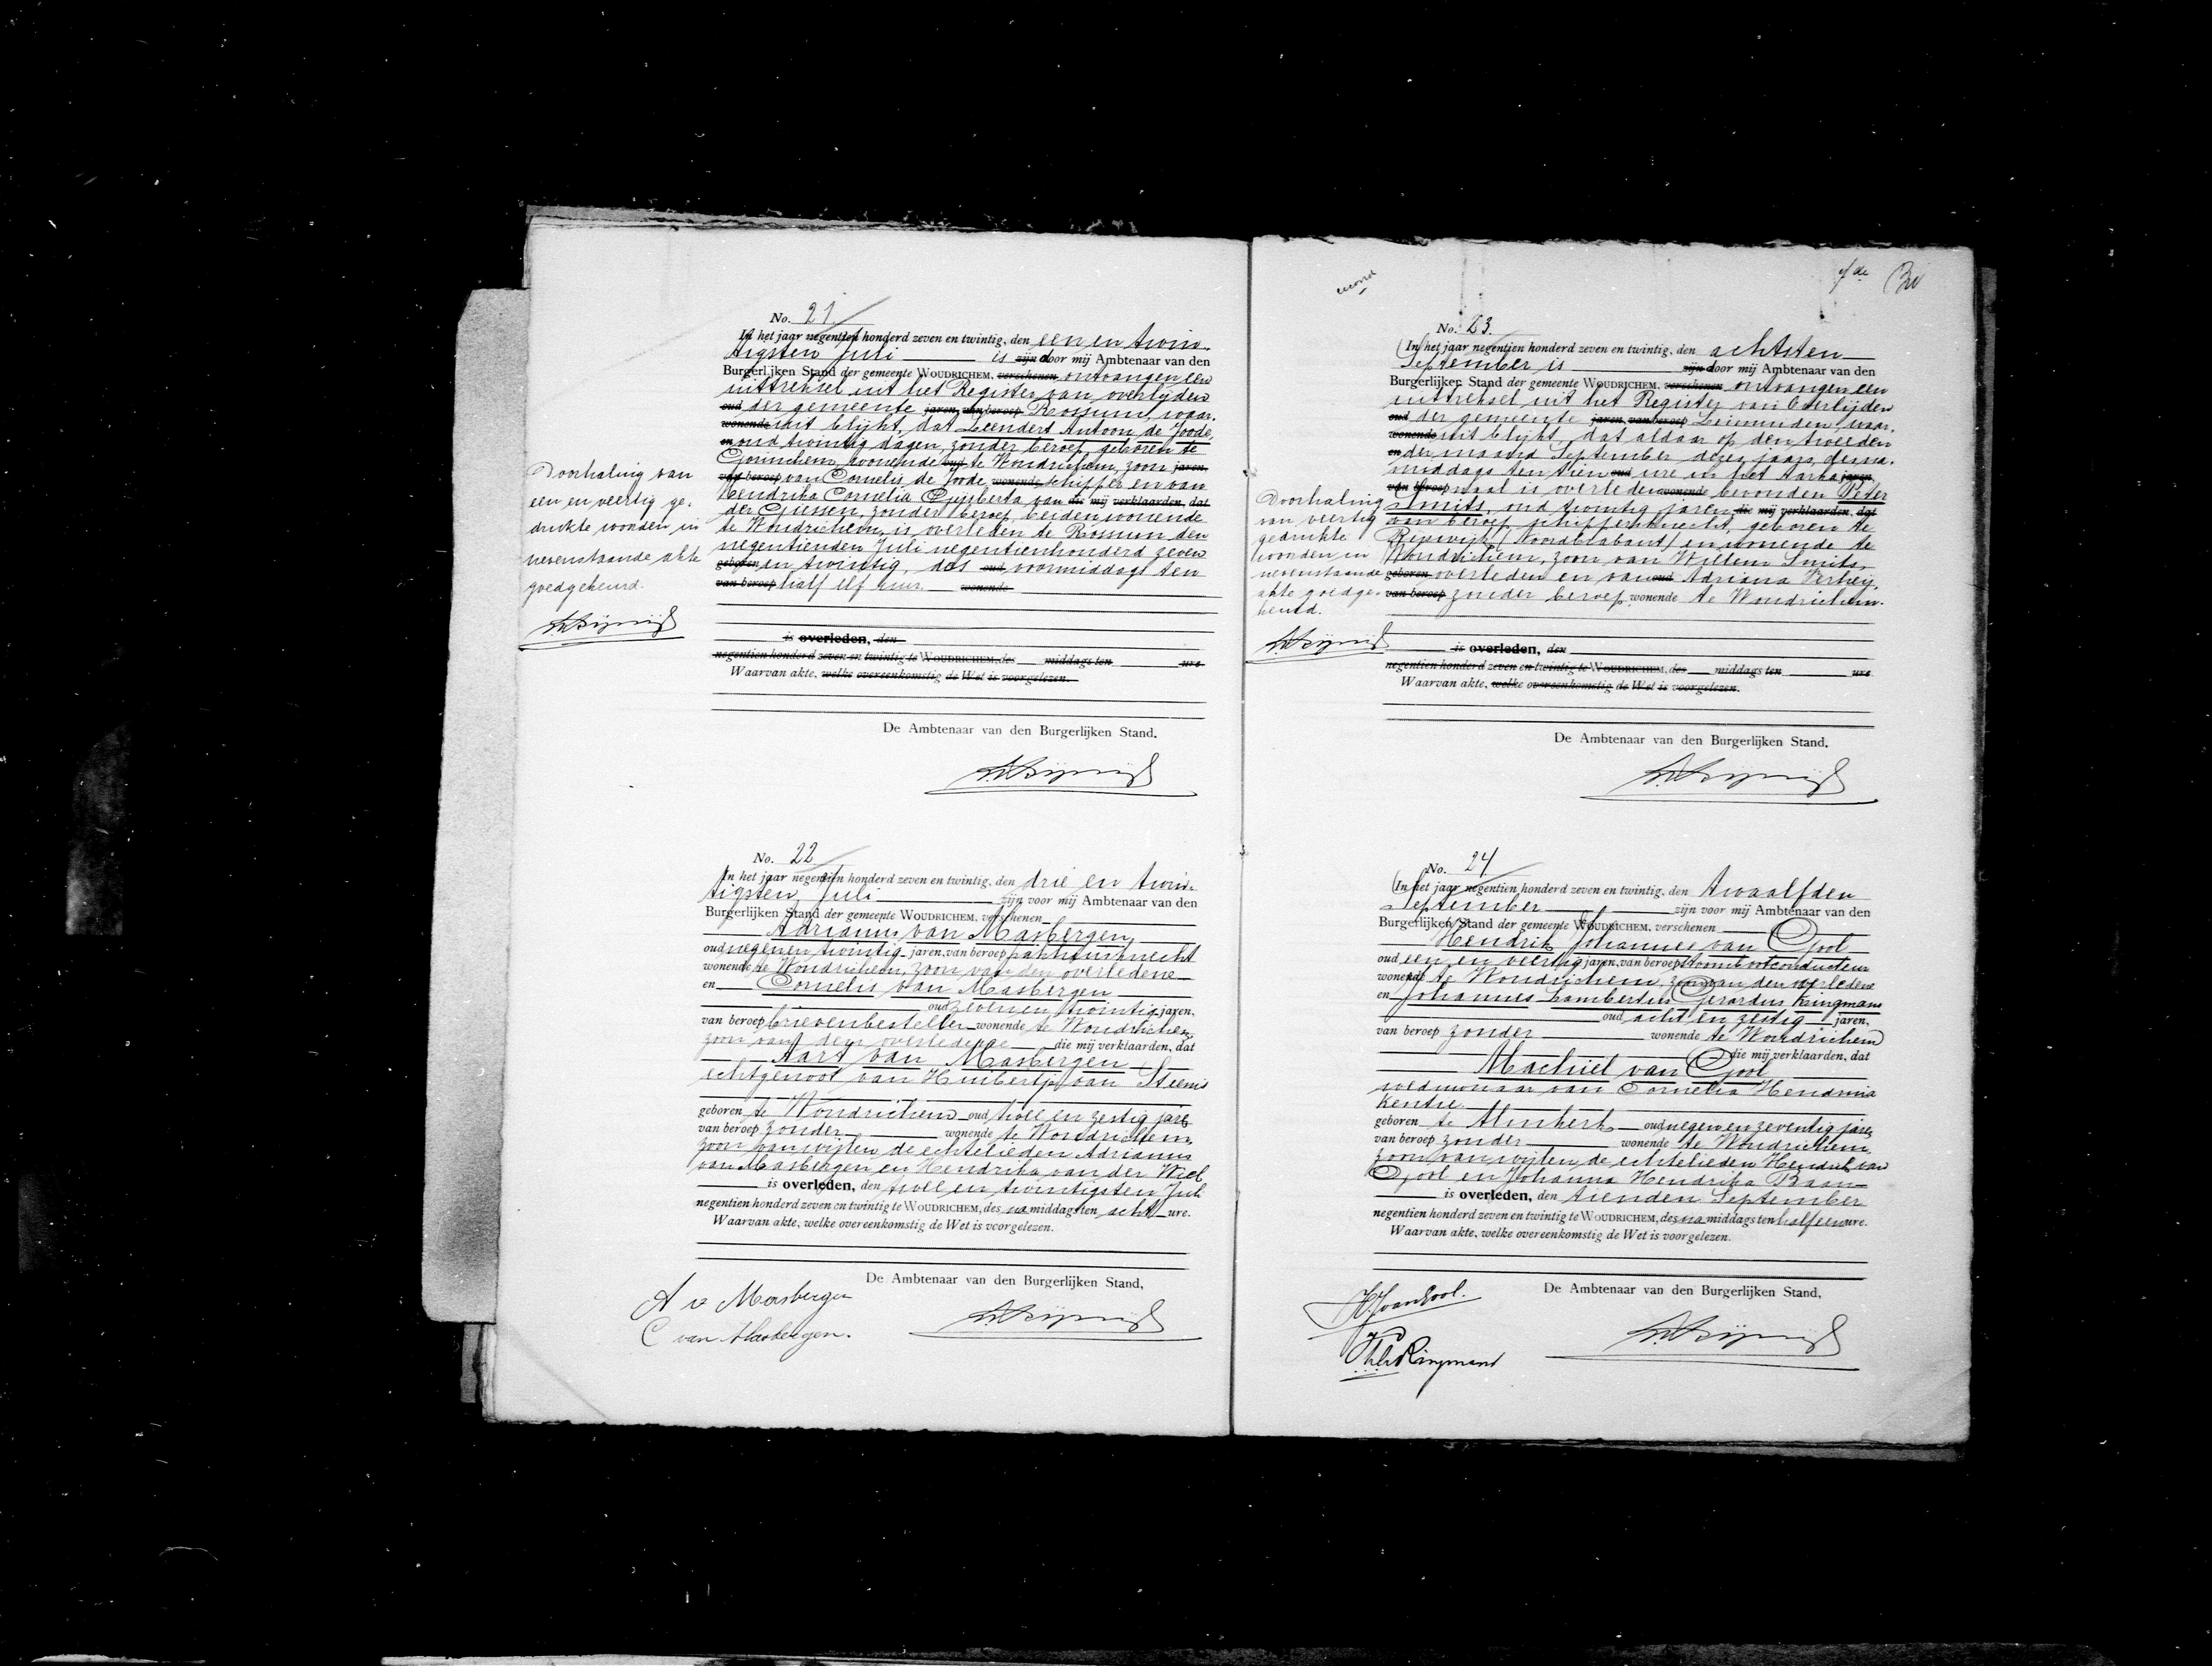 No. 21.
In het jaar negentien honderd zeven en twintig, den een en twin-
tigsten Juli is zijn door mij Ambtenaar van den
Burgerlijken Stand der gemeente WOUDRICHEM, verschenen ontvangen een
uittreksel uit het Register van overlijden
oud der gemeente jaren, van beroep Rossum, waar-
wonende uit blijkt, dat Leendert Antoon de Joode,
en oud twintig dagen, zonder beroep, geboren te
Gorinchem, wonende oud te Woudrichem, zoon jaren,
van beroep van Cornelis de Joode, wonende schipper en van
Hendrika Cornelia Gijsberta van die mij verklaarden, dat
der Giessen, zonder beroep, beiden wonende
te Woudrichem, is overleden te Rossum den
negentienden Juli negentienhonderd zeven
geboren en twintig, des oud voormiddags ten
van beroep half elf uur. wonende
is overleden, den
negentien honderd zeven en twintig te WOUDRICHEM, des middags ten ure
Waarvan akte, welke overeenkomstig de Wet is voorgelezen.
De Ambtenaar van den Burgerlijken Stand.
Doorhaling van
een en veertig ge-
drukte woorden in
nevenstaande akte
goedgekeurd.
No. 22
In het jaar negentien honderd zeven en twintig, den drie en twin-
tigsten Juli zijn voor mij Ambtenaar van den
Burgerlijken Stand der gemeente WOUDRICHEM, verschenen
Adrianus van Masbergen,
oud negen en twintig jaren, van beroep pakhuisknecht
wonende te Woudrichem, zoon van den overledene
en Cornelis van Masbergen
oud zeven en twintig jaren,
van beroep brievenbesteller wonende te Woudrichem,
zoon van den overledene die mij verklaarden, dat
Aart van Masbergen
echtgenoot van Huibertje van Steenis
geboren te Woudrichem oud twee en zestig jaren
van beroep zonder wonende te Woudrichem,
zoon van wijlen de echtelieden Adrianus
van Masbergen en Hendrika van der Wiel
is overleden, den twee en twintigsten Juli
negentien honderd zeven en twintig te WOUDRICHEM, des na middags ten acht ure.
Waarvan akte, welke overeenkomstig de Wet is voorgelezen.
De Ambtenaar van den Burgerlijken Stand,
A v Masbergen
C van Masbergen.
No. 23.
In het jaar negentien honderd zeven en twintig, den achtsten
September is zijn door mij Ambtenaar van den
Burgerlijken Stand der gemeente WOUDRICHEM, verschenen ontvangen een
uittreksel uit het Register van Overlijden
oud der gemeente jaren, van beroep Leimuiden, waar-
wonende uit blijkt, dat aldaar op den tweeden
en der maand September dezes jaars, des na-
middags ten tien oud ure in het Aarka- jaren,
van beroep naal is overleden wonende bevonden Peter
Smits, oud twintig jaren, die mij verklaarden, dat
van beroep schippersknecht, geboren te
Rijswijk (Noordbrabant) en wonende te
Woudrichem, zoon van Willem Smits,
geboren overleden en van oud Adriana Verheij,
van beroep zonder beroep, wonende te Woudrichem.
is overleden, den
negentien honderd zeven en twintig te WOUDRICHEM, des middags ten ure
Waarvan akte, welke overeenkomstig de Wet is voorgelezen.
De Ambtenaar van den Burgerlijken Stand.
Doorhaling
van veertig
gedrukte
woorden in
nevenstaande
akte goedge-
keurd.
No. 24
In het jaar negentien honderd zeven en twintig, den twaalfden
September zijn voor mij Ambtenaar van den
Burgerlijken Stand der gemeente WOUDRICHEM, verschenen
Hendrik Johannes van Gool
oud een en veertig jaren, van beroep stoombootconducteur
wonende te Woudrichem, zoon van den overledene
en Johannes Lambertus Gerardus Ringmans
oud acht en zestig jaren,
van beroep zonder wonende te Woudrichem
die mij verklaarden, dat
Machiel van Gool
weduwnaar van Cornelia Hendrina
geboren te Almkerk oud negen en zeventig jaren
van beroep zonder wonende te Woudrichem,
zoon van wijlen de echtelieden Hendrik van
Gool en Johanna Hendrika Baan
is overleden, den tienden September
negentien honderd zeven en twintig te WOUDRICHEM, des na middags ten half een ure.
Waarvan akte, welke overeenkomstig de Wet is voorgelezen.
De Ambtenaar van den Burgerlijken Stand,
H J van Gool.
Ringmans